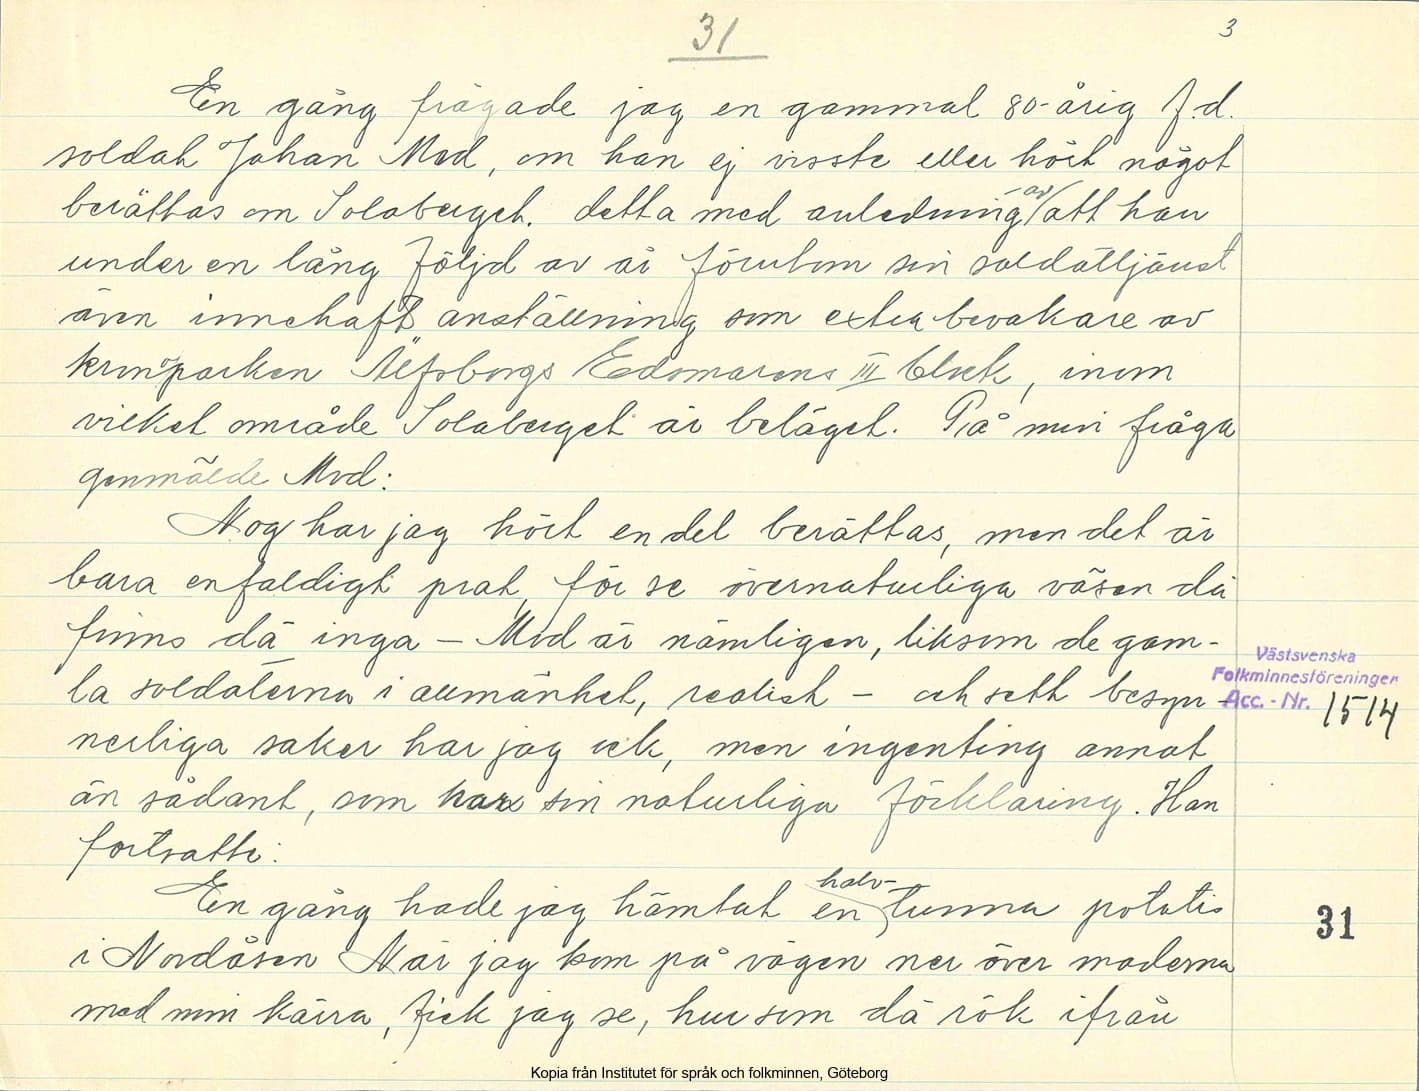 31
3
En gång frågade jag en gammal 80-årig f.d.
soldat Johan Mod, om han ej visste eller hört något
berättas om Solaberget. detta med anledning av att han
under en lång följd av år förutom sin soldattjänst
även innehaft anställning som extra bevakare av
kronoparken Älfsborgs Edsmarens III block, inom
vilket område Solaberget är beläget. På min fråga
genmälde Mod:
Nog har jag hört en del berättas, men det är
bara enfaldigt prat, för se övernaturliga väsen dä
finns dä inga – Mod är nämligen, liksom de gam-
la soldaterna i allmänhet, realist – och sett besyn-
nerliga saker har jag ock, men ingenting annat
än sådant, som har sin naturliga förklaring. Han
fortsatte:
En gång hade jag hämtat en halv-tunna potatis
i Nordåsen När jag kom på vägen ner över maderna
med min kärra, fick jag se, hur som dä rök ifrån
Västsvenska
Folkminnesföreningen
Acc. - Nr. 1514
31
Kopia från Institutet för språk och folkminnen, Göteborg